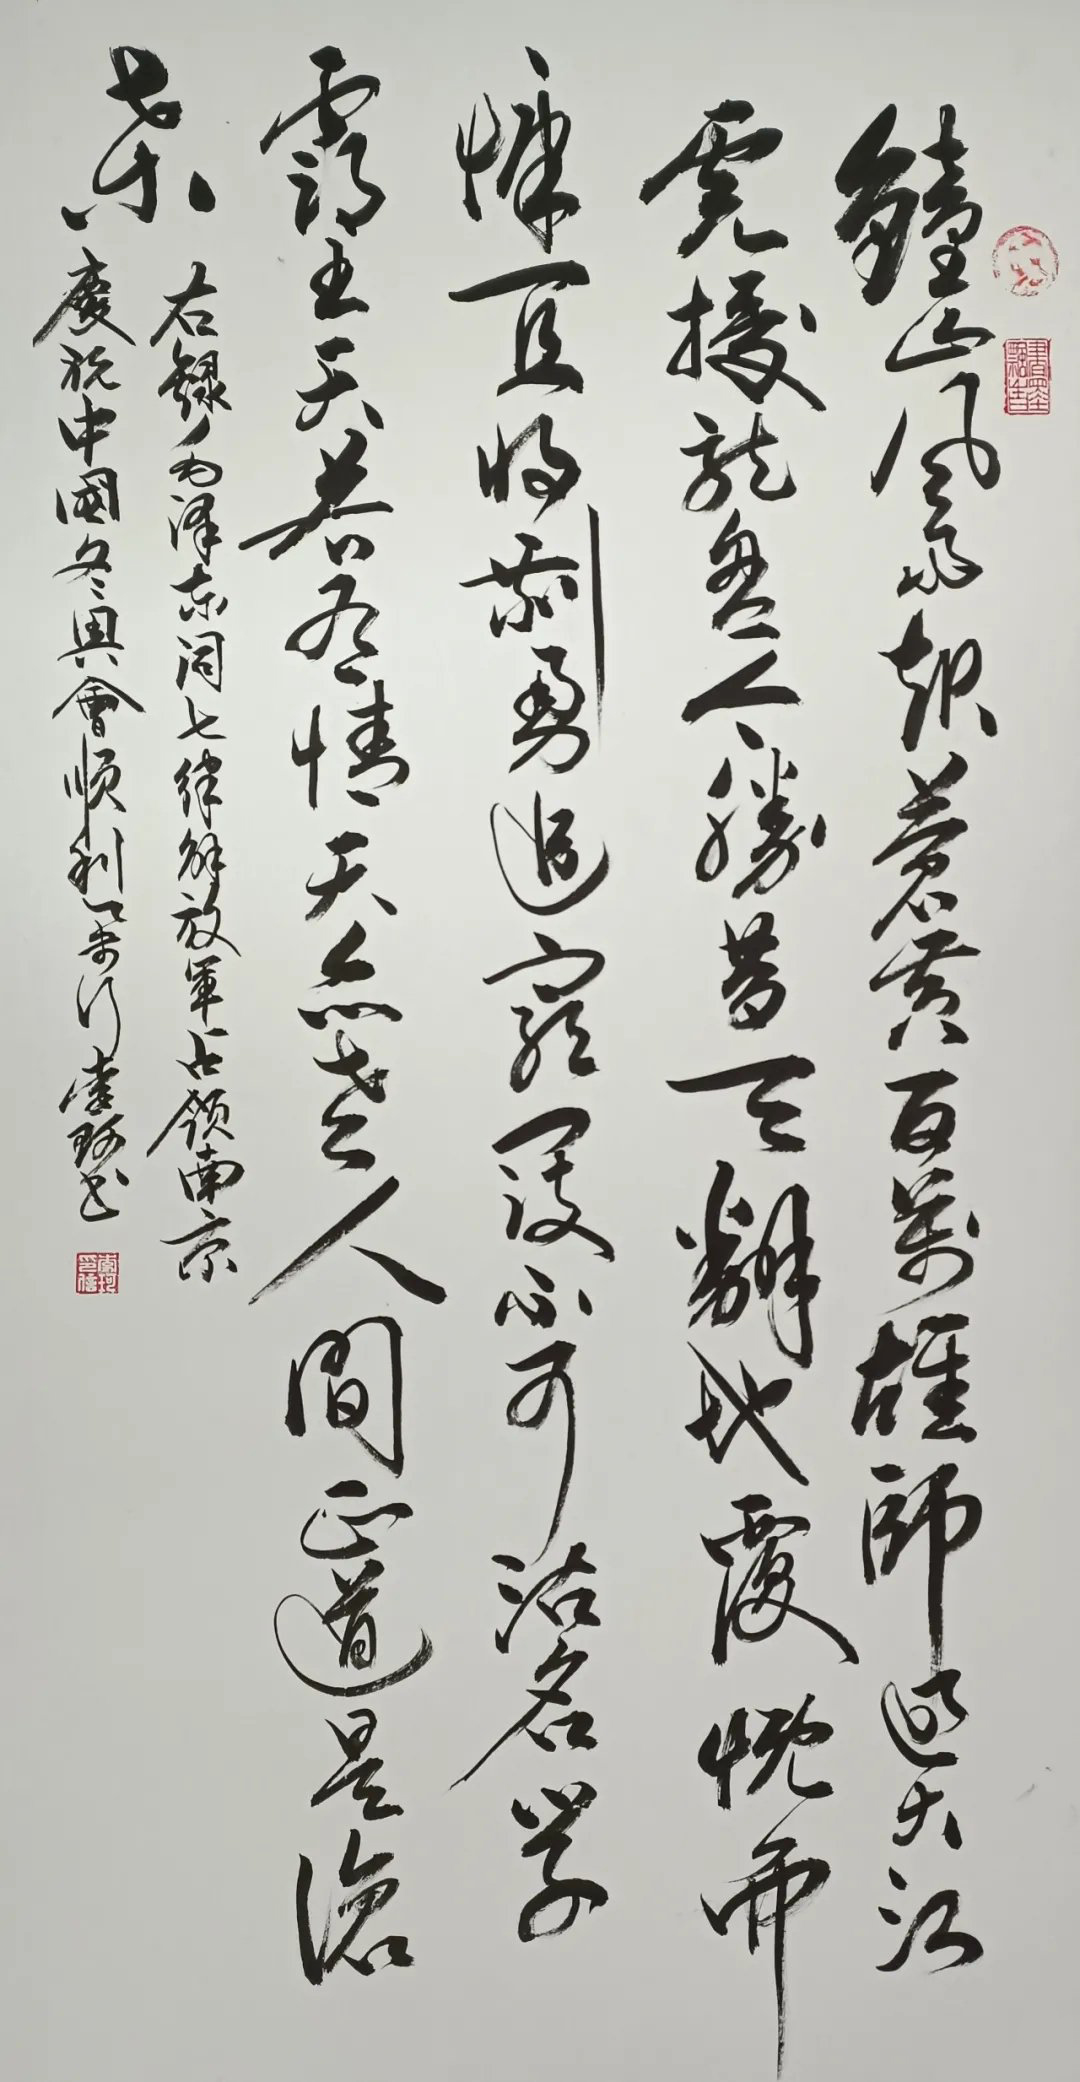 鐘山風雨起蒼黃百萬雄師過大江
虎據龍盤今勝昔天翻地覆慨而
慷宜將剩勇追窮寇不可沽名學
霸王天若有情天亦老人間正道是滄
桑
右録毛泽东词七律解放軍占領南京
慶祝中國冬奧會順利举行李珂书
李珂印信